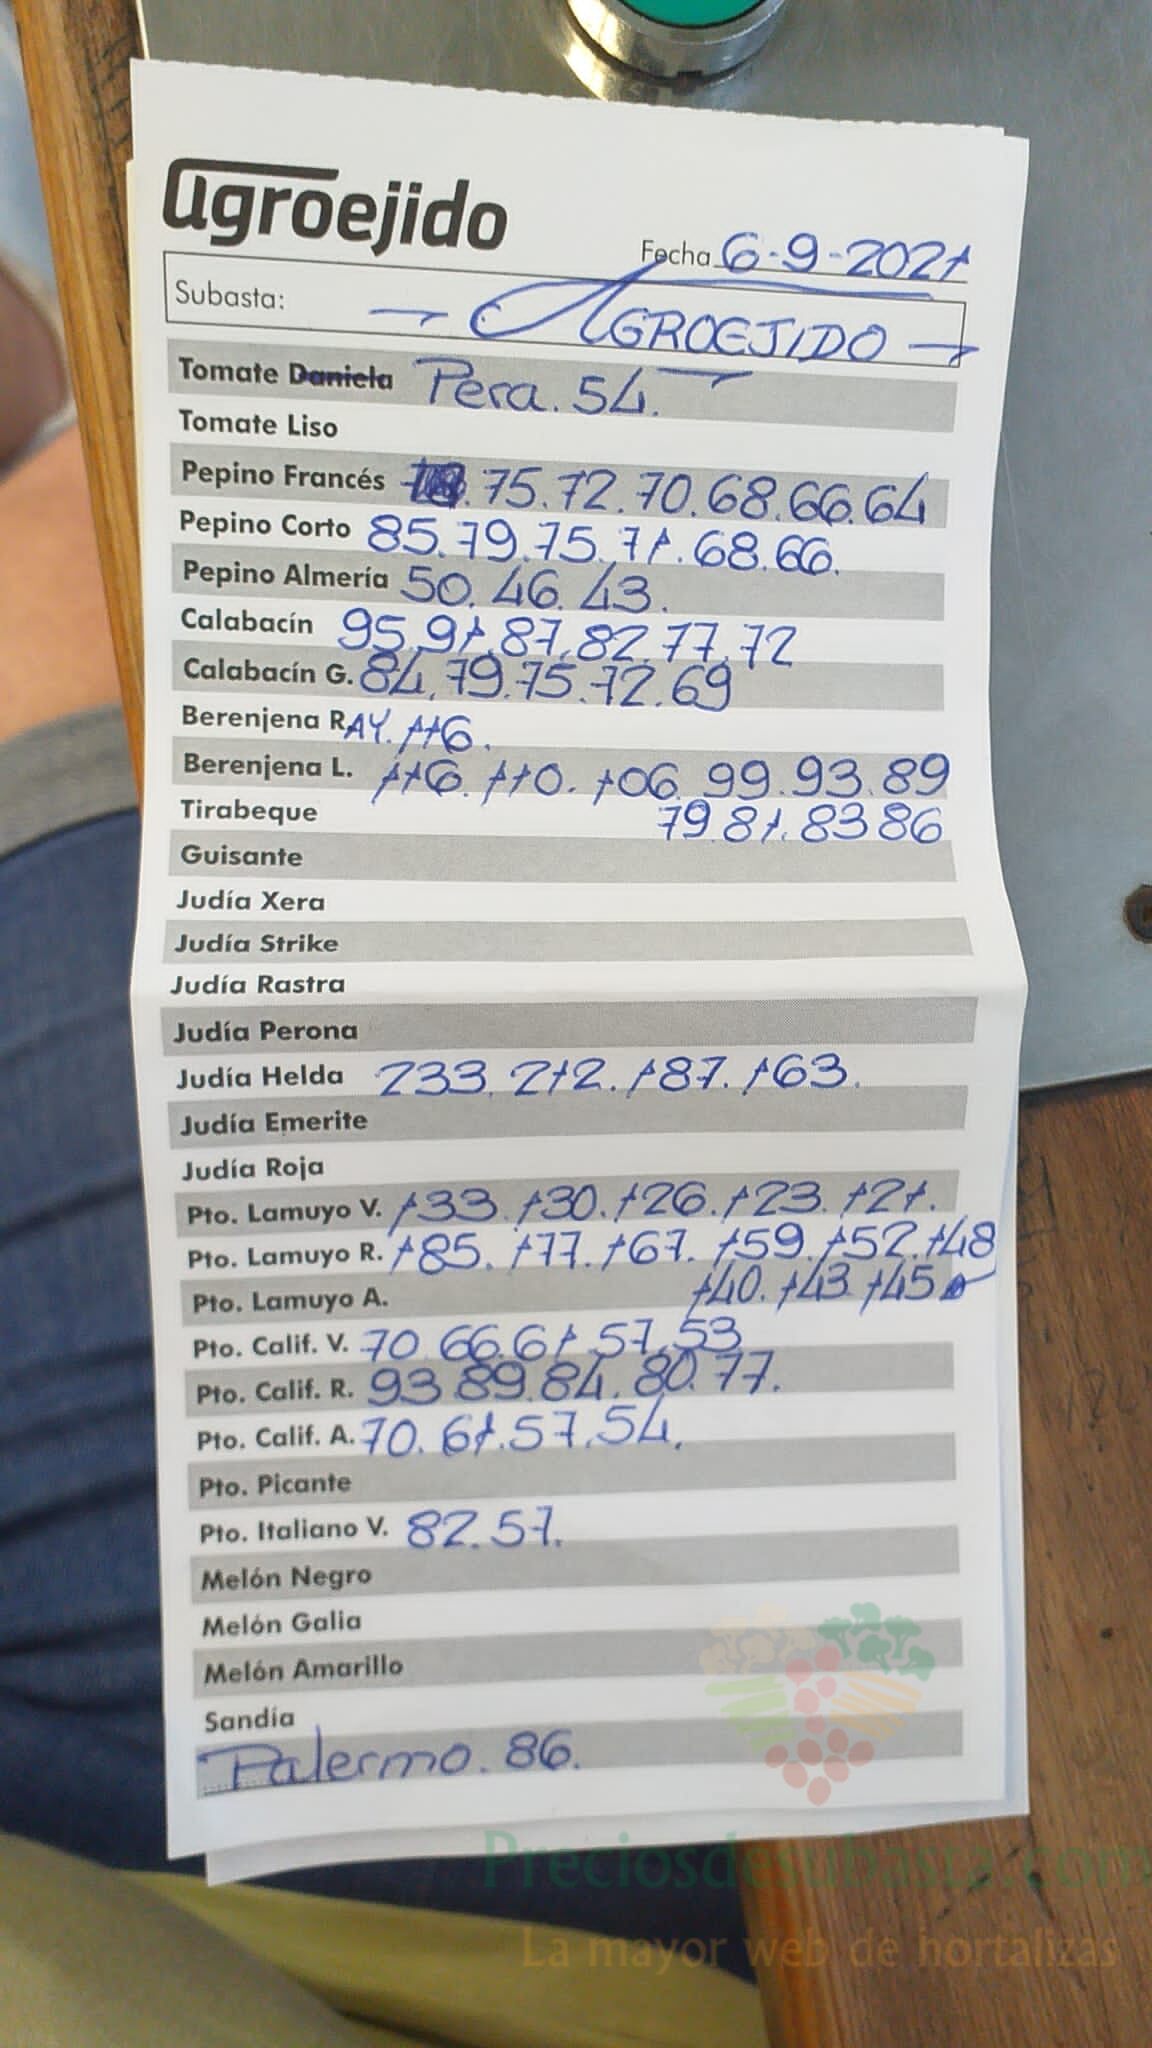 agroejido
Fecha 6-9-2021
Subasta: AGROEJIDO
Tomate Daniela Pera. 54.
Tomate Liso
Pepino Francés 75. 72. 70. 68. 66. 64
Pepino Corto 85. 79. 75. 71. 68. 66.
Pepino Almería 50. 46. 43.
Calabacín 95. 91. 87. 82. 77. 72
Calabacín G. 84. 79. 75. 72. 69
Berenjena RAY. 116.
Berenjena L. 116. 110. 106. 99. 93. 89
Tirabeque 79 81. 83 86
Guisante
Judía Xera
Judía Strike
Judía Rastra
Judía Perona
Judía Helda 233. 212. 187. 163.
Judía Emerite
Judía Roja
Pto. Lamuyo V. 133. 130. 126. 123. 121.
Pto. Lamuyo R. 185. 177. 167. 159. 152. 148
Pto. Lamuyo A. 140. 143. 145
Pto. Calif. V. 70 66. 61. 57. 53
Pto. Calif. R. 93 89. 84. 80. 77.
Pto. Calif. A. 70. 61. 57. 54.
Pto. Picante
Pto. Italiano V. 82. 57.
Melón Negro
Melón Galia
Melón Amarillo
Sandía
Palermo. 86.
Preciosdesubasta.com
La mayor web de hortalizas